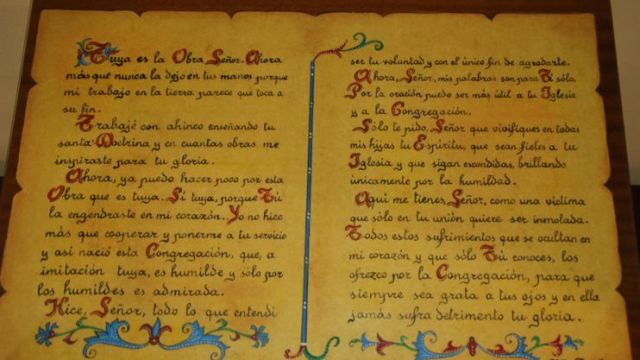 Tuya es la Obra, Señor. Ahora
más que nunca la dejo en tus manos porque
mi trabajo en la tierra parece que toca a
su fin.
Trabajé con ahinco enseñando tu
santa Doctrina y en cuantas obras me
inspiraste para tu gloria.
Ahora, ya puedo hacer poco por esta
Obra que es tuya. Sí tuya, porque Tú
la engendraste en mi corazón. Yo no hice
más que cooperar y ponerme a tu servicio
y así nació esta Congregación, que, a
imitación tuya, es humilde y sólo por
los humildes es admirada.
Hice, Señor, todo lo que entendí
ser tu voluntad y con el único fin de agradarte.
Ahora, Señor, mis palabras son para Ti sólo.
Por la oración puedo ser más útil a tu Iglesia
y a la Congregación.
Sólo te pido, Señor que vivifiques en todas
mis hijas tu Espíritu, que sean fieles a tu
Iglesia y que sigan escondidas, brillando
únicamente por la humildad.
Aquí me tienes, Señor, como una víctima
que sólo en tu unión quiere ser inmolada.
Todos estos sufrimientos que se ocultan en
mi corazón y que sólo Tú conoces, los
ofrezco por la Congregación, para que
siempre sea grata a tus ojos y en ella
jamás sufra detrimento tu gloria.